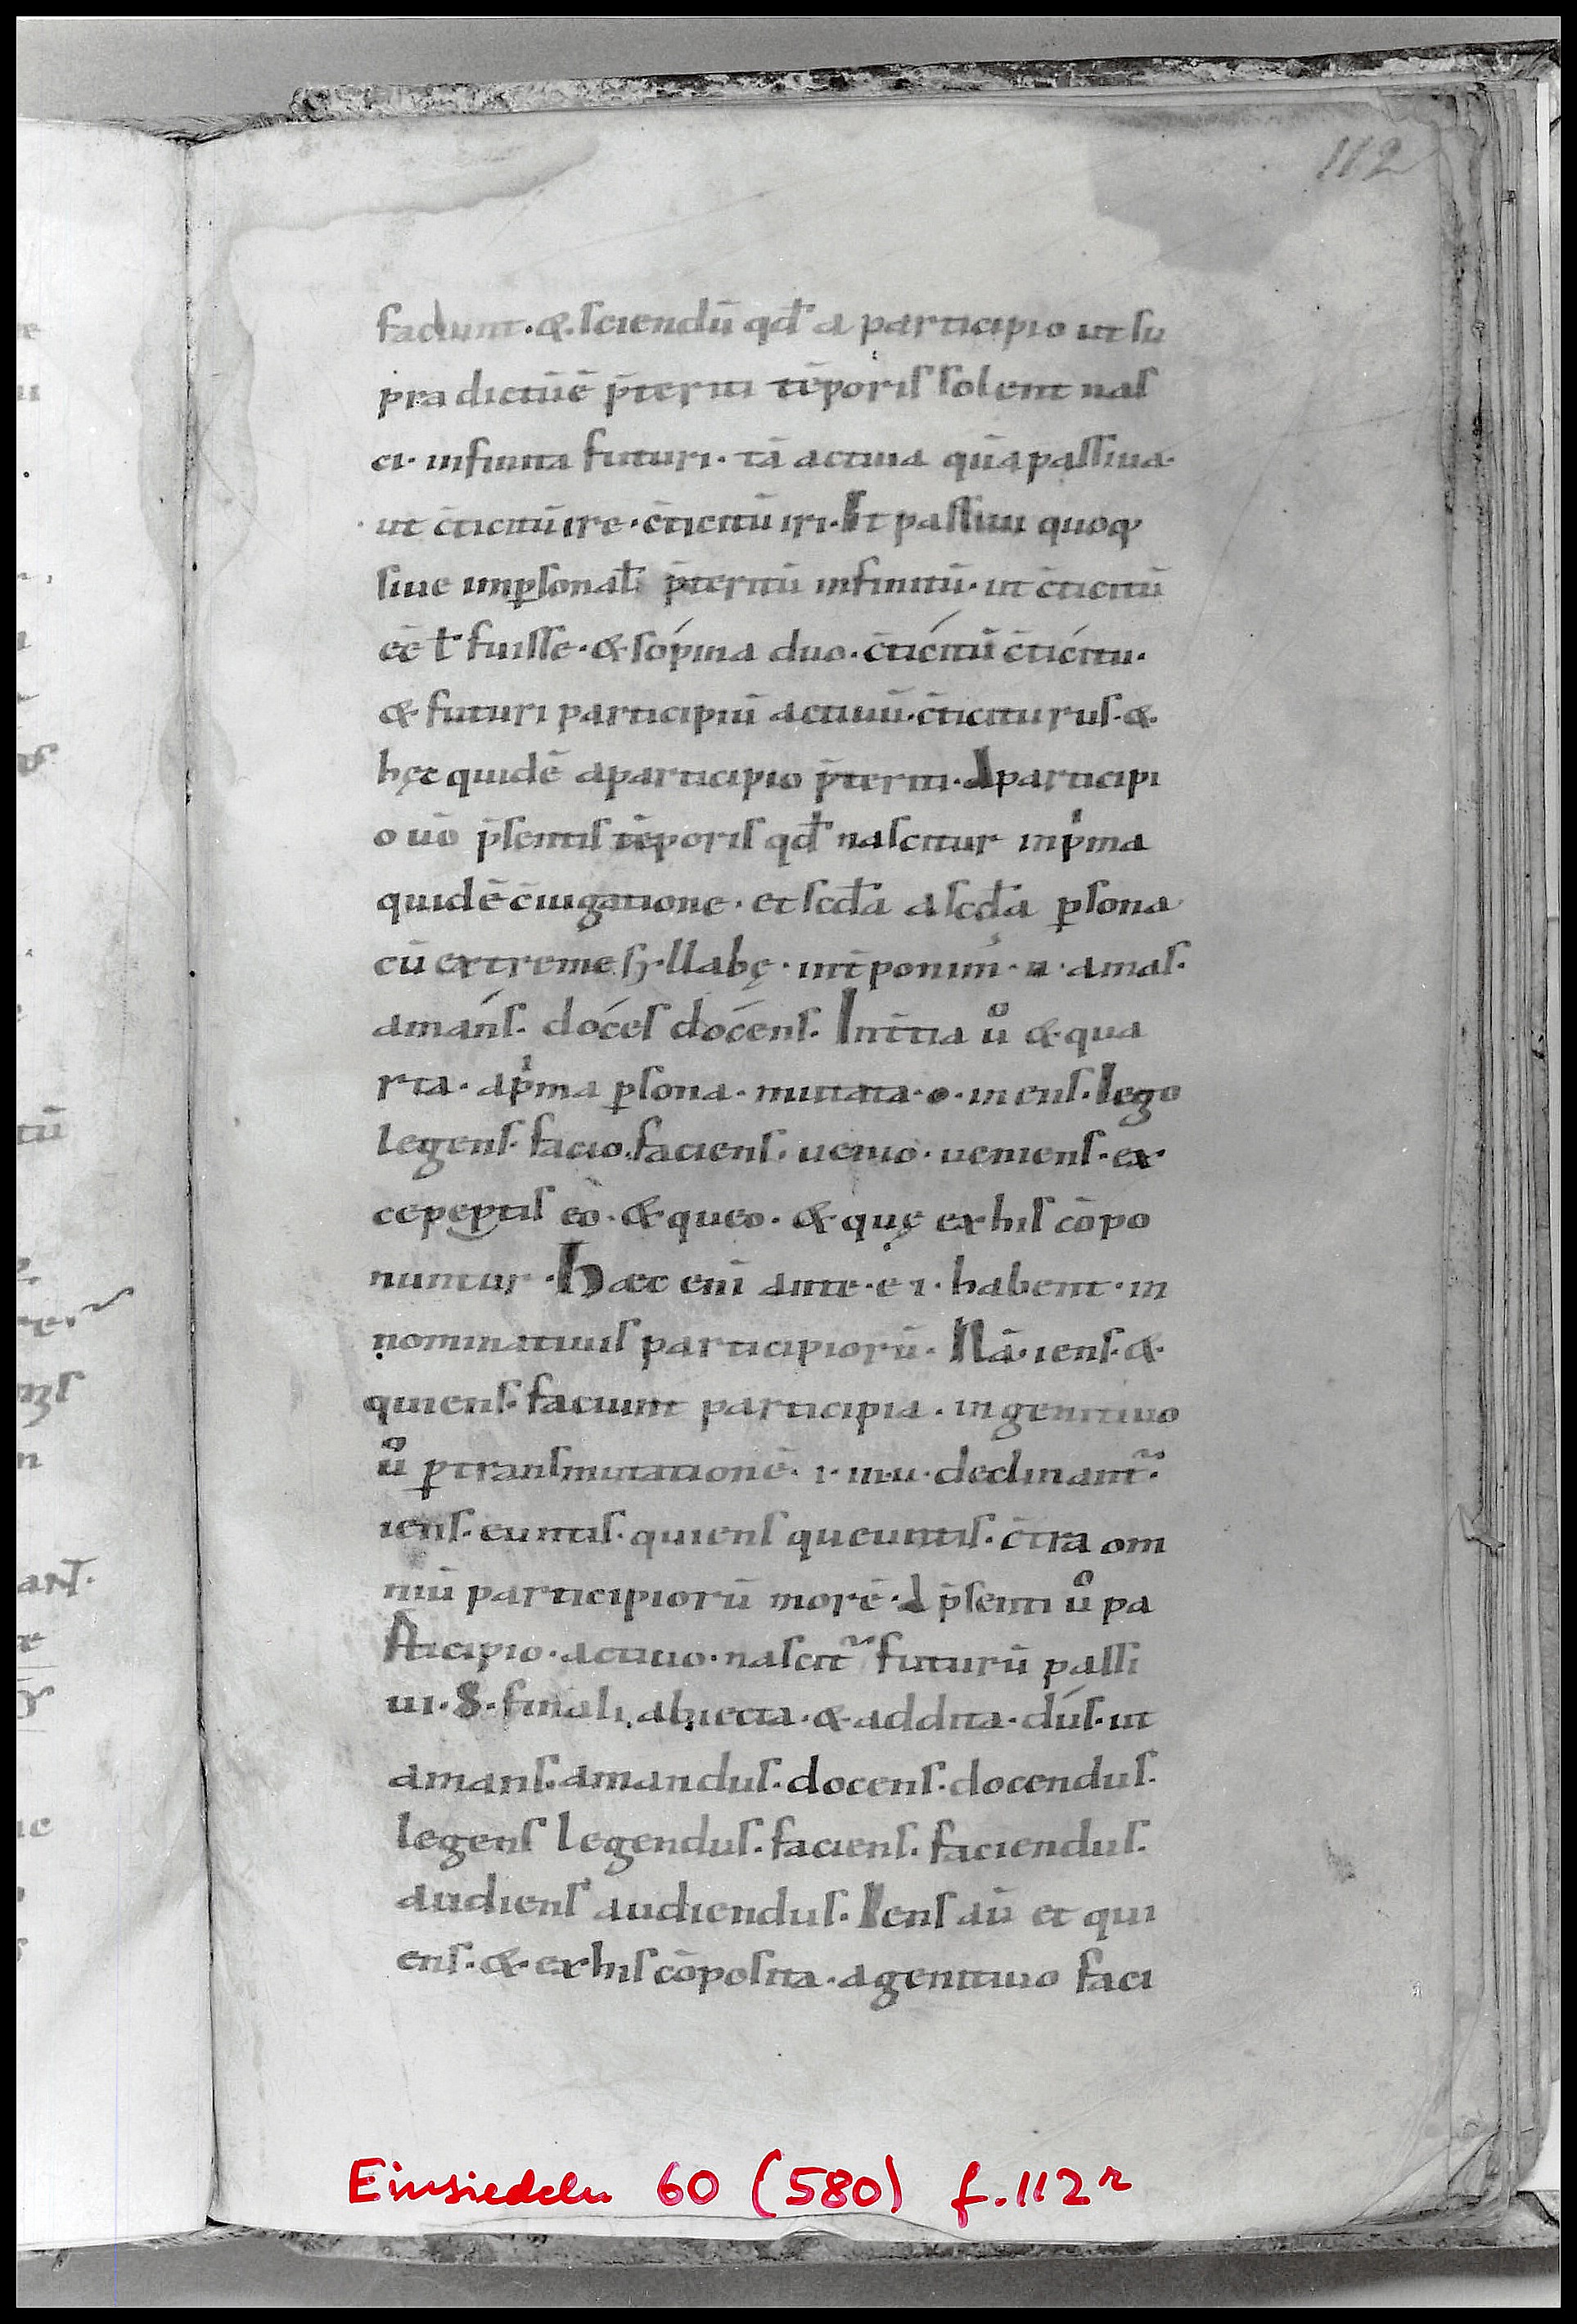 112
faciunt · & · sciendū qđ a participio ut su
pra dictūē p̄teriti tēporis solent nas
ci · infinita futuri · tā actiua quā passiua ·
ut c̄ticitū ire · c̄ticitū iri · Et passiui quoq
siue inꝑsonał p̄teritū infinitū · ut c̄ticitū
eē ł fuisse · & sópina duo · c̄tícitū c̄tícitu ·
& futuri participiū actiuū · c̄ticiturus · &
hęc quidē a participio p̄teriti · A participi
o ūo p̄sentis tēporis qđ nascitur inpͥma
quidē c̄iugatione · et scđa a scđa ꝑsona
cū extreme sy · llabę · int̄ponim᾽ · n · amas ·
amáns · dóces dócens · In t̄tia uͦ & qua
rta · a pͥma ꝑsona · mutata · o · in ens · lego
legens · facio · faciens · uenio · ueniens · ex
cepeptis eo · & queo · & quę ex his cōpo
nuntur · Haec eni ante · e i · habent · in
nominatiuis participiorū · Nā · iens · &
quiens · faciunt participia · in genitiuo
uͦ ꝑ transmutationē · i · in u · declinant᷑ ·
iens · euntis · quiens queuntis · c̄tra om
niū participiorū morē · A p̄senti uͦ pa
rticipio · actiuo · nascit᷑ futurū passi
ui · S · finali abiecta · & addita · dús · ut
amans · amandus · docens · docendus ·
legens legendus · faciens · faciendus ·
audiens audiendus · Iens aū et qui
ens · & · ex his cōposita · a genitiuo faci
Einsiedeln 60 (580) f. 112ʳ